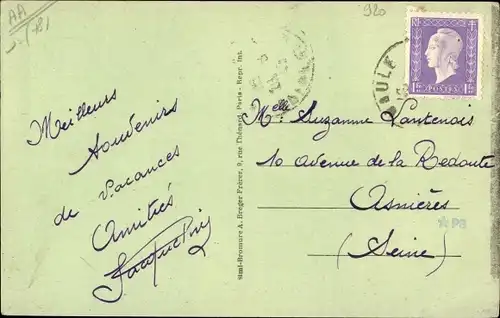 AA
920
BAULE
RF
1F50 POSTES 1F50
Meilleurs
Souvenirs
de Vacances
Amitiés
Jacqueline
Simi-Bromure A. Breger Frères, 9, rue Thénard, Paris - Repr. Int.
Melle Suzanne Lantenois
10 Avenue de la Redoute
Asnières
(Seine)
PB